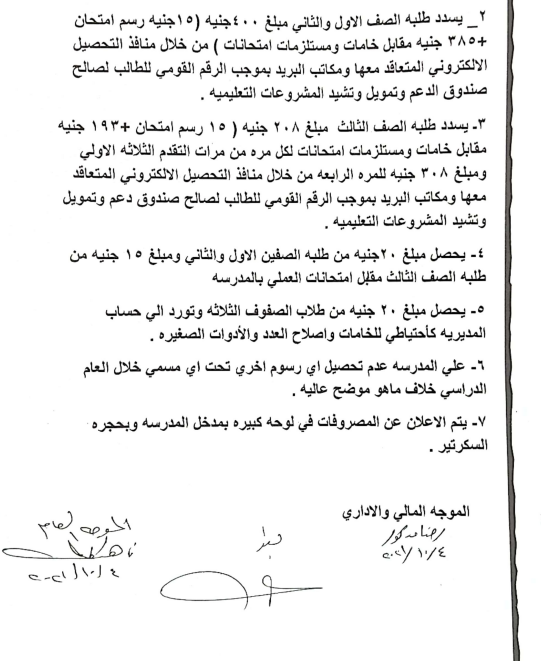 ٢_ يسدد طلبه الصف الاول والثاني مبلغ ٤٠٠جنيه (١٥جنيه رسم امتحان
+٣٨٥ جنيه مقابل خامات ومستلزمات امتحانات ) من خلال منافذ التحصيل
الالكتروني المتعاقد معها ومكاتب البريد بموجب الرقم القومي للطالب لصالح
صندوق الدعم وتمويل وتشيد المشروعات التعليميه .
٣- يسدد طلبه الصف الثالث مبلغ ٢٠٨ جنيه ( ١٥ رسم امتحان +١٩٣ جنيه
مقابل خامات ومستلزمات امتحانات لكل مره من مرات التقدم الثلاثه الاولي
ومبلغ ٣٠٨ جنيه للمره الرابعه من خلال منافذ التحصيل الالكتروني المتعاقد
معها ومكاتب البريد بموجب الرقم القومي للطالب لصالح صندوق دعم وتمويل
وتشيد المشروعات التعليميه .
٤- يحصل مبلغ ٢٠جنيه من طلبه الصفين الاول والثاني ومبلغ ١٥ جنيه من
طلبه الصف الثالث مقابل امتحانات العملي بالمدرسه
٥- يحصل مبلغ ٢٠ جنيه من طلاب الصفوف الثلاثه وتورد الي حساب
المديريه كأحتياطي للخامات واصلاح العدد والأدوات الصغيره .
٦- علي المدرسه عدم تحصيل اي رسوم اخري تحت اي مسمي خلال العام
الدراسي خلاف ماهو موضح عاليه .
٧- يتم الاعلان عن المصروفات في لوحه كبيره بمدخل المدرسه وبحجره
السكرتير .
الموجه المالي والاداري
الموجه العام
٢٠٢١/١٠/٤
٢٠٢١/١٠/٤